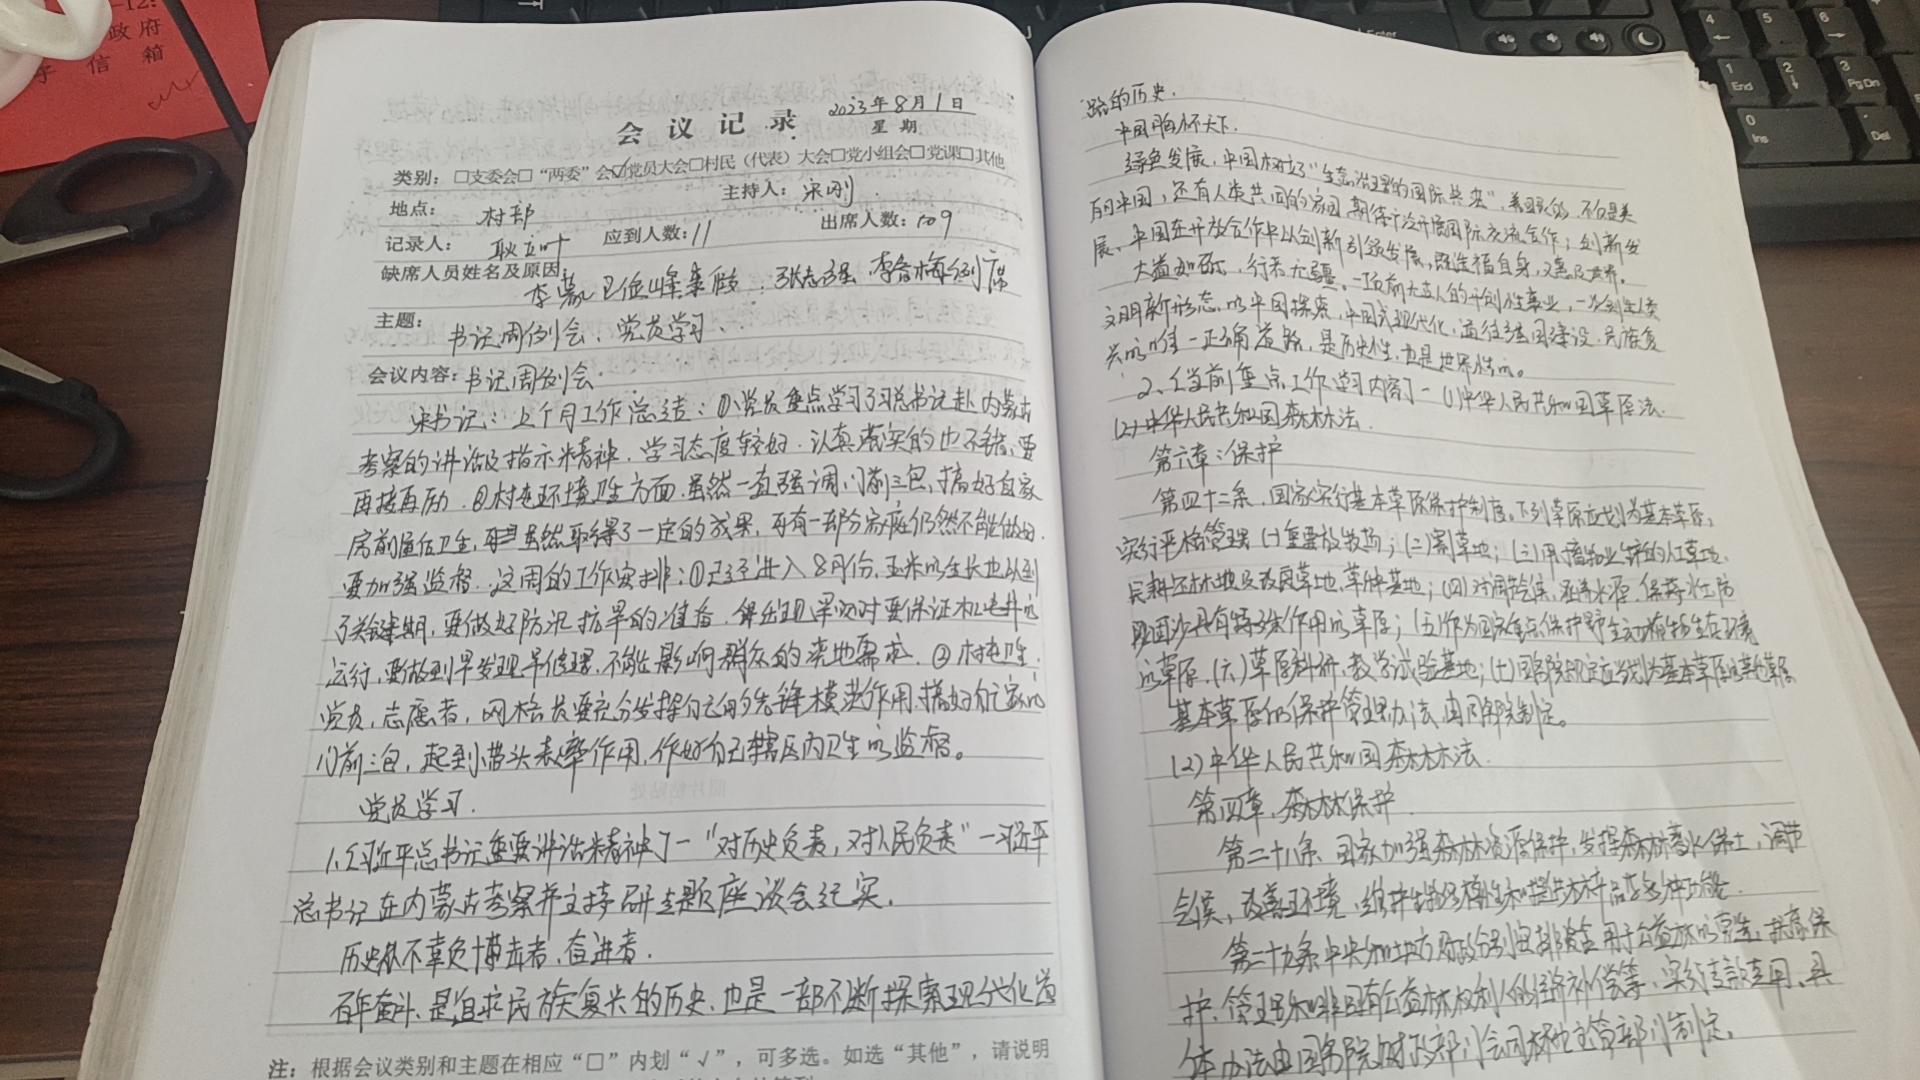 政府
信箱
会议记录
2023年8月1日
星期
类别：□支委会□“两委”会☑党员大会□村民（代表）大会□党小组会□党课□其他
地点：村部 主持人：宋刚
记录人：耿立叶 应到人数：11 出席人数：9
缺席人员姓名及原因：李 张志强 列席
主题：书记周例会、党员学习、
会议内容：书记周例会.
宋书记：：上个月工作总结：①党员重点学习了习总书记赴内蒙古
考察的讲话及指示精神，学习态度较好，认真落实的也不错，要
再接再励．②村屯环境卫生方面，虽然一直强调门前三包，搞好自家
房前屋后卫生，虽然取得了一定的成果，可有一部分家庭仍然不能做好．
要加强监督．这周的工作安排：①已经进入8月份，玉米的生长也以到
了关键期，要做好防汛抗旱的准备，保证机电井的
运行，要做到早发现早修理，不能影响群众的浇地需求．②村屯卫生．
党员，志愿者，网格员要充分发挥自己的先锋模范作用，搞好自家的
门前三包，起到带头表率作用，作好自己辖区内卫生的监督。
党员学习．
1.《习近平总书记重要讲话精神》一“对历史负责，对人民负责”一习近平
总书记在内蒙古考察并主持召开专题座谈会纪实．
历史从不辜负搏击者，奋进者．
百年奋斗，是追求民族复兴的历史，也是一部不断探索现代化道
注：根据会议类别和主题在相应“□”内划“√”，可多选。如选“其他”，请说明
路的历史．
中国胸怀天下．
绿色发展，中国树立了“生态治理的国际典范”，美丽的，不仅是美
的中国，还有人类共同的家园，期待广泛开展国际交流合作；创新发
展，中国在开放合作中以创新引领发展，既造福自身，又惠及世界。
大道如砥，行者无疆。一项前无古人的开创性事业，一次创造人类
文明新形态的中国探索，中国式现代化，通往强国建设、民族复
兴的唯一正确道路，是历史性，也是世界性的。
2、《当前重点工作学习内容》一(1)中华人民共和国草原法．
(2)中华人民共和国森林法．
第六章：保护
第四十二条，国家实行基本草原保护制度。下列草原应划为基本草原，
实行严格管理(一)重要放牧场；(二)割草地；(三)用于畜牧业生产的人工草地、
退耕还草地以及改良草地、草种基地；(四)对调节气候、涵养水源、保持水土、防
风固沙具有特殊作用的草原；(五)作为国家重点保护野生动植物生存环境
的草原，(六)草原科研，教学试验基地；(七)国务院规定应当划为基本草原的其他草原
基本草原的保护管理办法，由国务院制定。
(2)中华人民共和国森林法．
第四章，森林保护
第二十八条、国家加强森林资源保护，发挥森林蓄水保土，调节
气候，改善环境，维护生物多样性和提供林产品等多种功能．
第二十九条中央和地方财政分别安排资金用于公益林的营造，抚育保
护、管理和非国有公益林权利人的经济补偿等，实行专款专用，具
体办法由国务院财政部门会同林业主管部门制定。
4
5
6
1
End
2
3
Pg Dn
0
Ins
Del
Enter